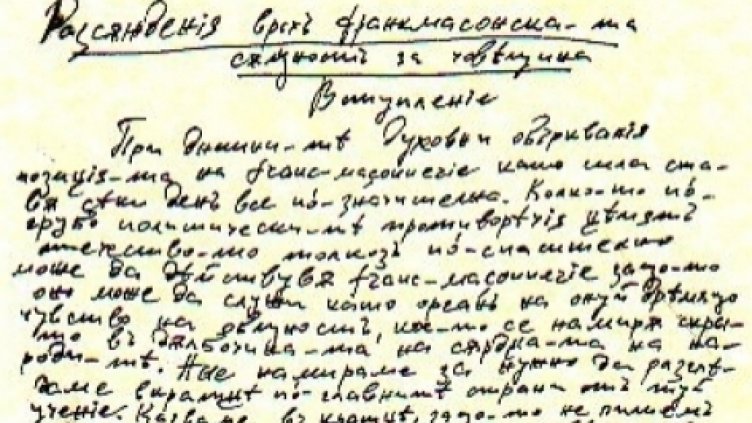 Разсѫждения врьхъ франкмасонска-та
сѫщность за човѣщина
Вступление
При днешни-тѣ духовни обърквания
позиция-та на франс-масонничие като сила ста-
вя сѣки день все по́-значителна. Колко-то по́-
грубо политически-тѣ противорѣчия цѣпятъ
отечество-то толкозь по́-спасително
може да дѣйствува франс-масонничие защо-то
оно може да служи като органъ на онуй дрѣмящо
чувство на общность, кое-то се намиря скри-
то въ дълбочина-та на сърдца-та на на-
роди-тѣ. Ние намираме за нужно да разглѣ-
даме вкратцѣ по́-главнитѣ страни отъ туй
учение. Казваме въ кратцѣ, защо-то не пишемъ